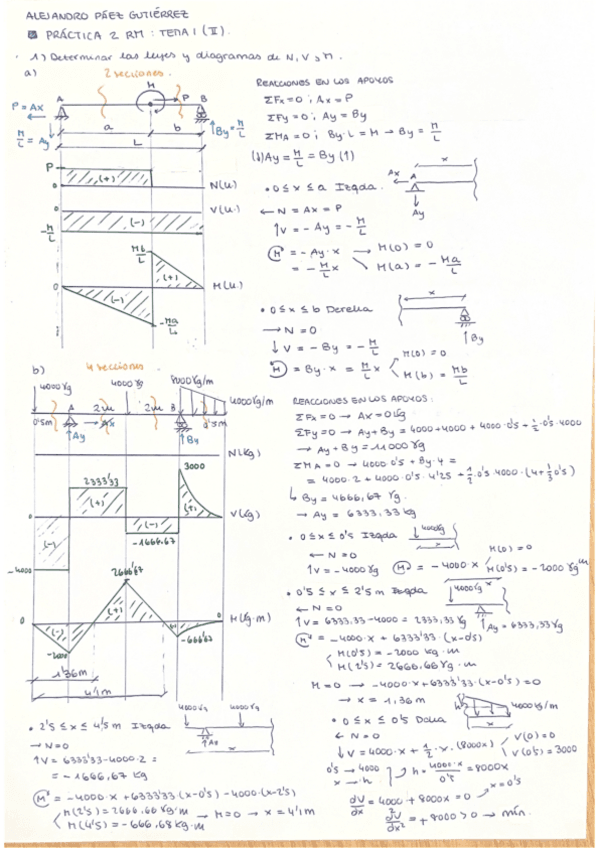 ALEJANDRO PÁEZ GUTIÉRREZ
PRÁCTICA 2 RM: TEMA 1 (II).
1) Determinar las leyes y diagramas de N, V y M.
a)
2 secciones.
M
P
A
B
P = Ax
M/L = Ay
By = M/L
a
b
L
P
(+)
N(u.)
0
V(u.)
(-)
-M/L
Mb/L
(+)
0
M(u.)
(-)
-Ma/L
REACCIONES EN LOS APOYOS
ΣFx=0 ; Ax = P
ΣFy=0 ; Ay = By
ΣMA=0 ; By·L = M → By = M/L
(↓) Ay = M/L = By (↑)
• 0 ≤ x ≤ a Izqda.
← N = Ax = P
↑V = - Ay = - M/L
M = - Ay · x → M(0) = 0
= - M/L x M(a) = - Ma/L
x
Ax
A
Ay
• 0 ≤ x ≤ b Derecha
→ N = 0
↓ V = - By = - M/L
M = By · x = M/L x M(0) = 0
M(b) = Mb/L
x
By
b)
4 secciones.
4000 kg
4000 kg
8000 kg/m
4000 kg/m
A
2m
2m
B
0'5m
Ax
0'5m
Ay
By
N(kg)
3000
2333'33
(+)
(+)
V(kg)
(-)
(-)
-1666,67
-4000
2666'67
(+)
0
M(kg·m)
(-)
-2000
-666'67
1'36m
4'1m
REACCIONES EN LOS APOYOS:
ΣFx = 0 → Ax = 0 kg
ΣFy = 0 → Ay + By = 4000 + 4000 + 4000·0'5 + 1/2·0'5·4000
→ Ay + By = 11000 kg
ΣMA = 0 → 4000·0'5 + By·4 =
= 4000·2 + 4000·0'5·4'25 + 1/2·0'5·4000·(4+1/3 0'5)
↳ By = 4666,67 kg.
→ Ay = 6333,33 kg
• 0 ≤ x ≤ 0'5 Izqda
← N = 0
↑V = -4000 kg
M = -4000·x M(0) = 0
M(0'5) = -2000 kg m
4000kg
x
• 0'5 ≤ x ≤ 2'5 m Izqda
← N = 0
↑V = 6333,33 - 4000 = 2333,33 kg
M = -4000·x + 6333'33·(x-0'5)
M(0'5) = -2000 kg·m
M(2'5) = 2666,66 kg·m
4000 kg x
Ay = 6333,33 kg
M = 0 → -4000·x + 6333'33·(x-0'5) = 0
→ x = 1,36 m
• 2'5 ≤ x ≤ 4'5 m Izqda
→ N = 0
↑V = 6333'33 - 4000·2 =
= -1666,67 kg
M = -4000·x + 6333'33 (x-0'5) - 4000·(x-2'5)
M(2'5) = 2666,66 kg·m → M=0 → x = 4'1m
M(4'5) = -666,68 kg·m
4000 kg
4000 kg
x
• 0 ≤ x ≤ 0'5 Dcha
← N = 0
↓ V = 4000·x + 1/2·x·(8000x) V(0) = 0
V(0'5) = 3000
0'5 → 4000
x → h
h = 4000·x/0'5 = 8000x
4000 kg/m
x
dV/dx = 4000 + 8000x = 0 → x = 0'5
dV/dx² = +8000 > 0 → mín.